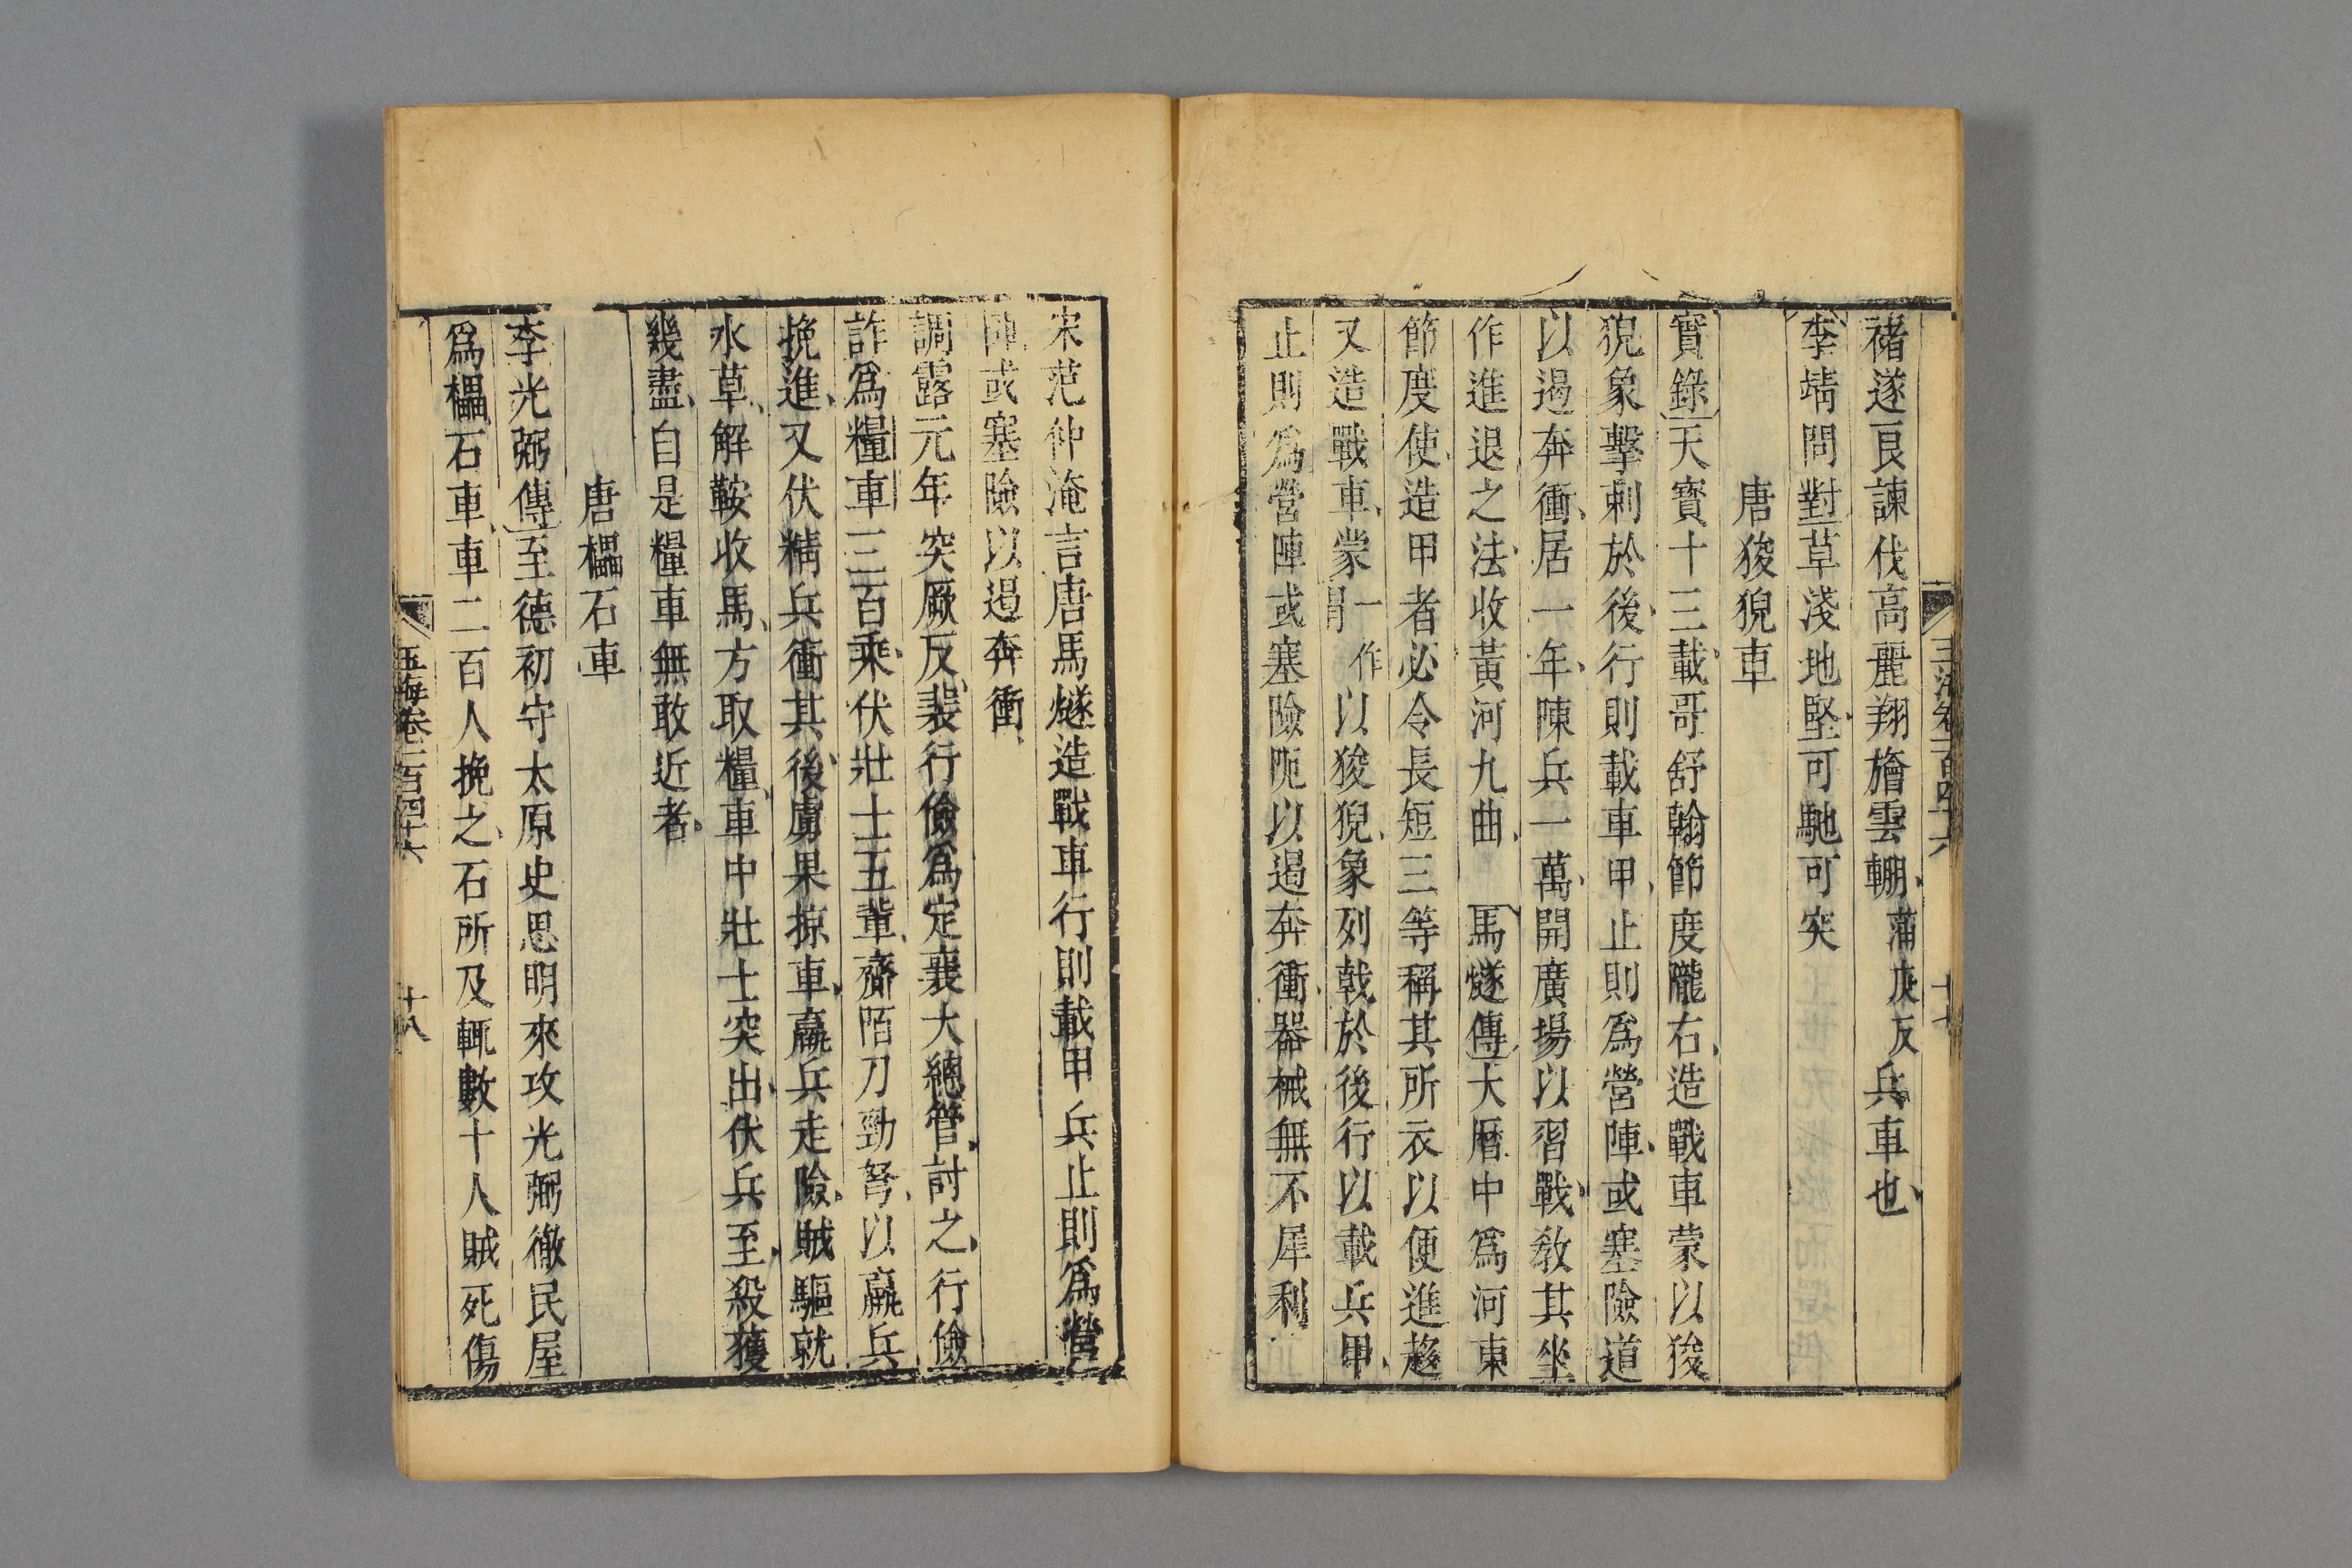 褚遂良諫伐高麗翔旝雲輣蒲庚反兵車也
李靖問對草淺地堅可馳可突
唐狻猊車
實錄天寳十三載哥舒翰節度隴右造戰車蒙以狻
猊象擊刺於後行則載車甲止則爲營陣或塞險道
以遏奔衝居一年陳兵一萬開廣場以習戰敎其坐
作進退之法收黃河九曲 馬燧傳大曆中爲河東
節度使造甲者必令長短三等稱其所衣以便進趍
又造戰車蒙一作以狻猊象列戟於後行以載兵甲
止則爲營陣或塞險阨以遏奔衝器械無不犀利
玉海卷一百四十六 十七
宋范仲淹言唐馬燧造戰車行則載甲兵止則爲營
陣或塞險以遏奔衝
調露元年突厥反裴行儉爲定襄大總管討之行儉
詐爲糧車三百乘伏壯士五輩齎陌刀勁弩以羸兵
挽進又伏精兵衝其後虜果掠車羸兵走險賊驅就
水草解鞍收馬方取糧車中壯士突出伏兵至殺獲
幾盡自是糧車無敢近者
唐櫑石車
李光弼傳至德初守太原史思明來攻光弼徹民屋
爲櫑石車車二百人挽之石所及輒數十人賊死傷
玉海卷一百四十六 十八